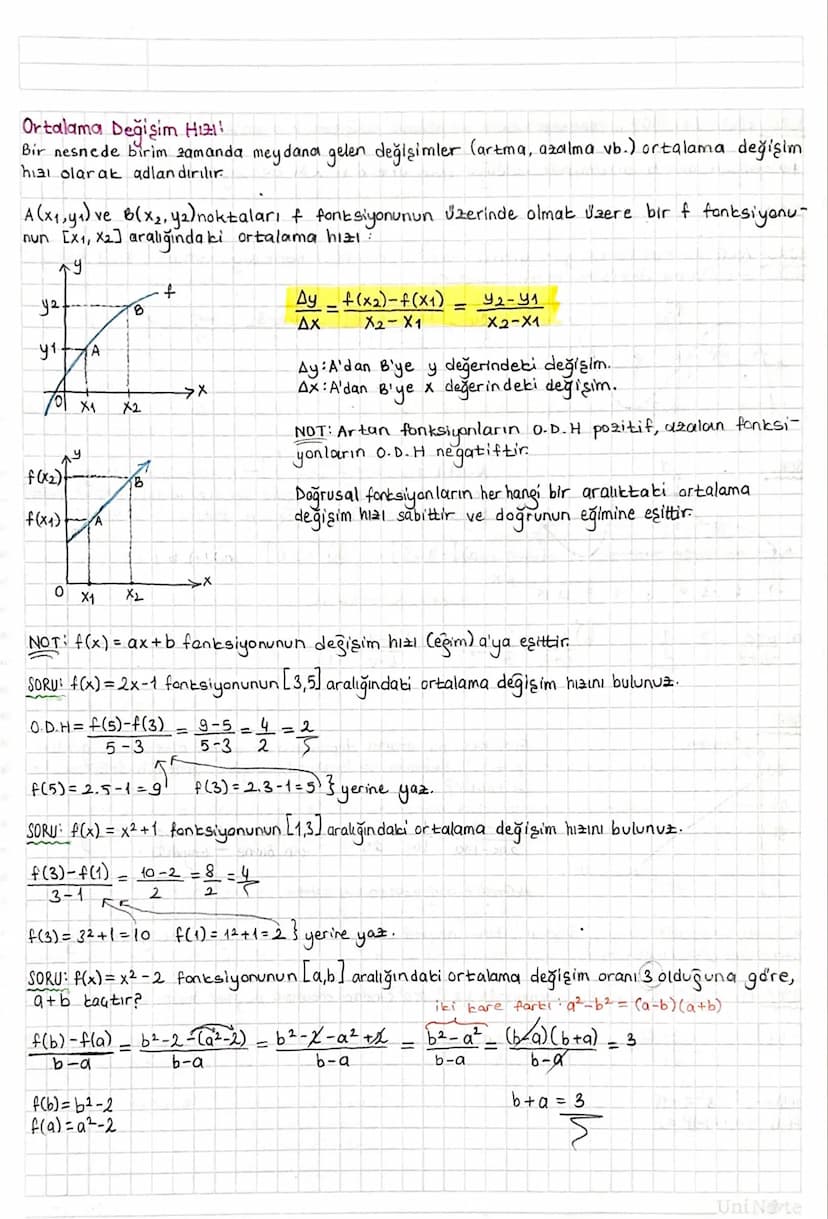 Ortalama Değişim Hızı:
Bir nesnede birim zamanda meydana gelen değişimler (artma, azalma vb.) ortalama değişim
hızı olarak adlandırılır.
A(x1,y1) ve B(x2,y2) noktaları f fonksiyonunun üzerinde olmak üzere bir f fonksiyonu-
nun [x1, x2] aralığındaki ortalama hızı:
y
y2
B
f
y1
A
O
x1
x2
x
Δy/Δx = f(x2)-f(x1)/x2-x1 = y2-y1/x2-x1
Δy: A'dan B'ye y değerindeki değişim.
Δx: A'dan B'ye x değerindeki değişim.
NOT: Artan fonksiyonların O.D.H pozitif, azalan fonksi-
yonların O.D.H negatiftir.
y
f(x2)
B
f(x1)
A
O
x1
x2
x
Doğrusal fonksiyonların her hangi bir aralıktaki ortalama
değişim hızı sabittir ve doğrunun eğimine eşittir.
NOT: f(x) = ax+b fonksiyonunun değişim hızı (eğim) a'ya eşittir.
SORU: f(x) = 2x-1 fonksiyonunun [3,5] aralığındaki ortalama değişim hızını bulunuz.
O.D.H = f(5)-f(3)/5-3 = 9-5/5-3 = 4/2 = 2
f(5) = 2.5-1 = 9 f(3) = 2.3-1 = 5 } yerine yaz.
SORU: f(x) = x²+1 fonksiyonunun [1,3] aralığındaki ortalama değişim hızını bulunuz.
f(3)-f(1)/3-1 = 10-2/2 = 8/2 = 4
f(3) = 3²+1 = 10 f(1) = 1²+1 = 2 } yerine yaz.
SORU: f(x) = x²-2 fonksiyonunun [a,b] aralığındaki ortalama değişim oranı 3 olduğuna göre,
a+b kaçtır?
iki kare farkı: a²-b² = (a-b)(a+b)
f(b)-f(a)/b-a = b²-2-(a²-2)/b-a = b²-2-a²+2/b-a = b²-a²/b-a = (b-a)(b+a)/b-a = 3
f(b) = b²-2
f(a) = a²-2
b+a = 3
UniNote